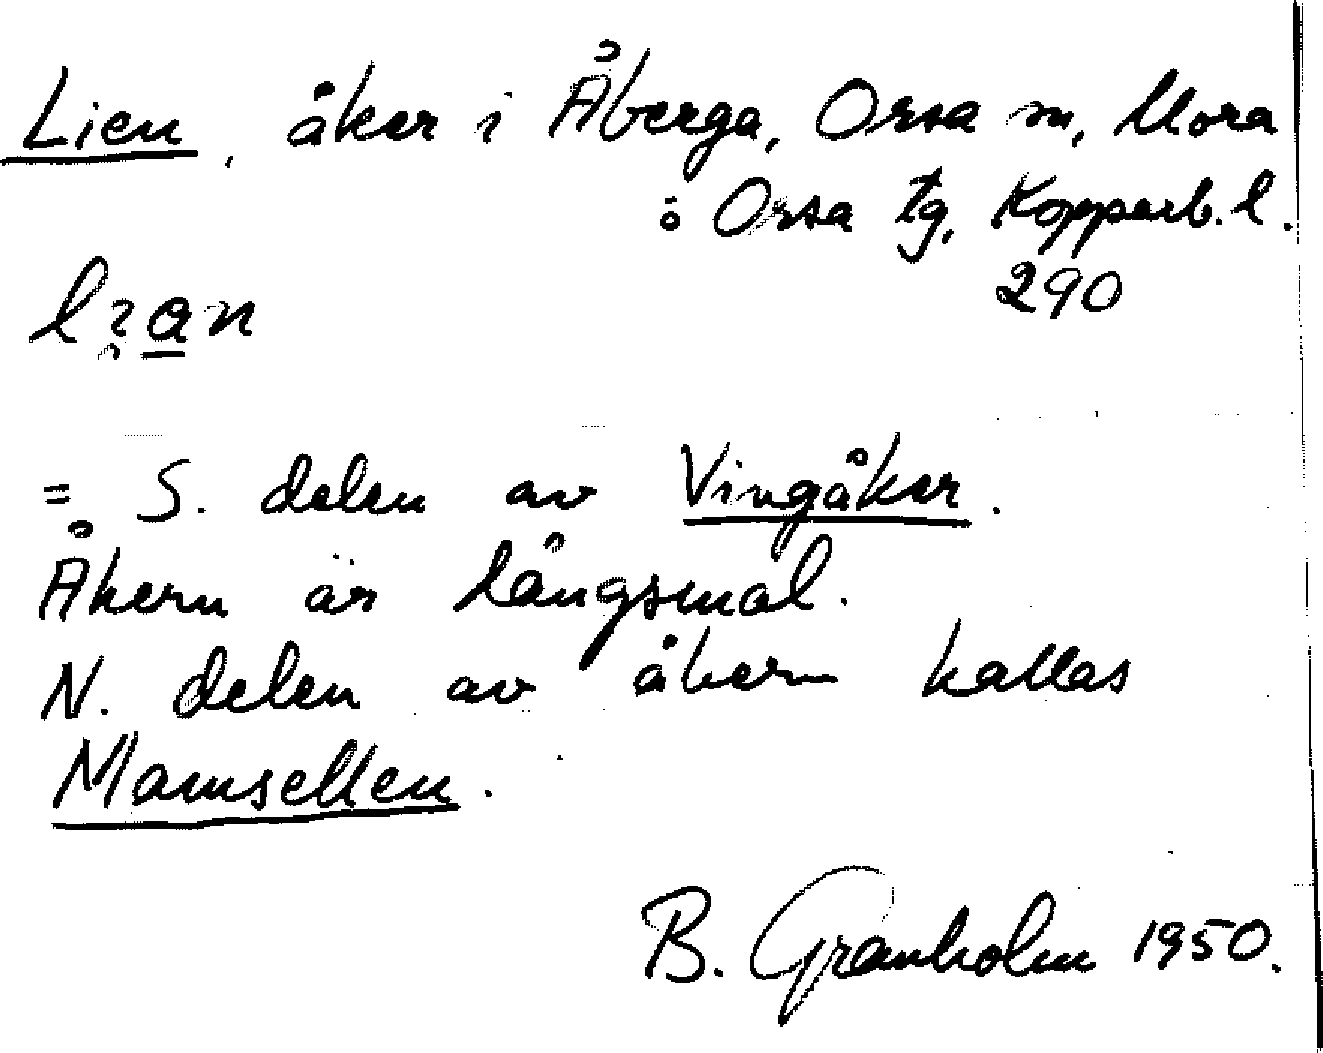 Lien, åker i Åberga, Orsa sn, Mora
o Orsa tg, Kopparb. l.
290
= S. delen av Vingåker.
Åkern är långsmal.
N. delen av åkern kallas
Mamsellen.
B. Granholm 1950.